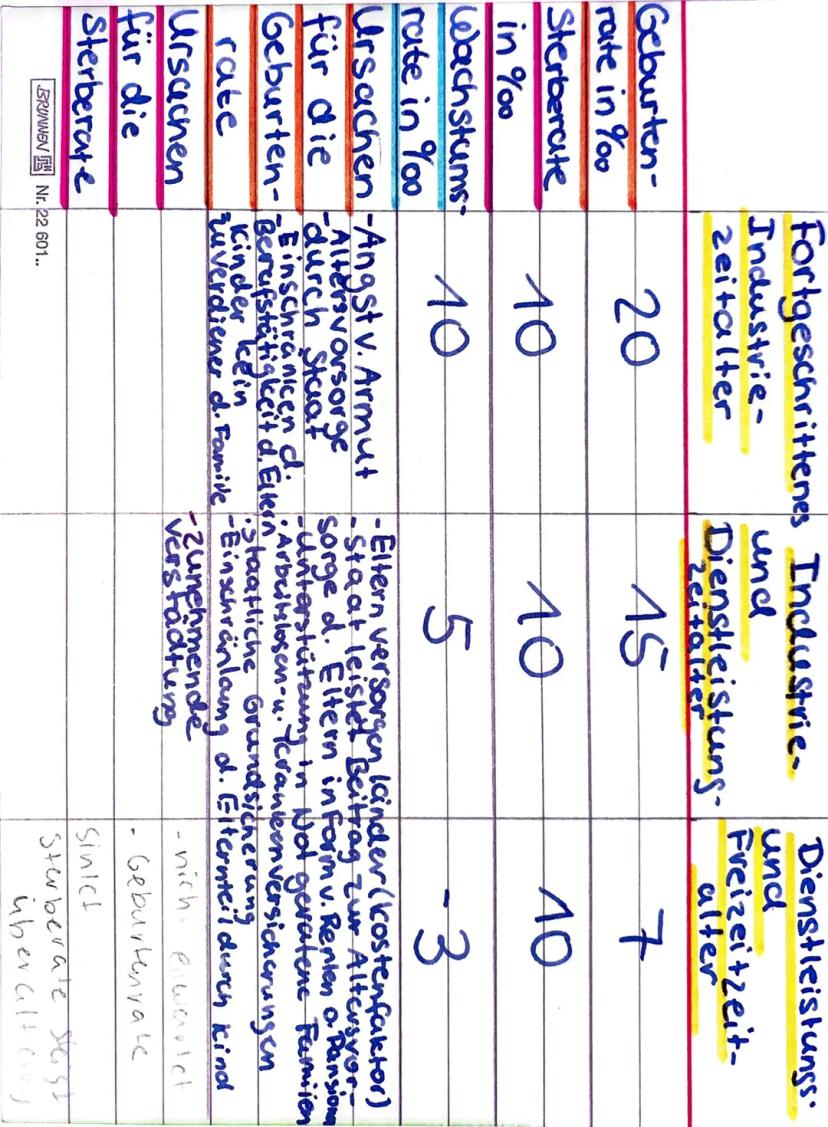 Fortgeschrittenes
Industrie-
zeitalter
Industrie-
und
Dienstleistung-
zeitalter
Dienstleistungs-
und
Freizeitzeit-
alter
Geburten-
rate in ‰
20
15
7
Sterberate
in ‰
10
10
10
Wachstums-
rate in ‰
10
5
-3
Ursachen
für die
Geburten-
rate
-Angst v. Armut
-Altersvorsorge
durch Staat
-Einschränken d.
Berufstätigkeit d. Eltern
-Kinder kein
Zuverdiener d. Familie
-Eltern versorgen Kinder (Kostenfaktor)
-Staat leistet Beitrag zur Altersvor-
sorge d. Eltern in Form v. Renten o. Pension
-Unterstützung in Not geratene Familien
: Arbeitslosen- u. Krankenversicherungen
: Staatliche Grundsicherung
-Einschränkung d. Elternteil durch Kind
-Zunehmende
Verstädtung
Ursachen
für die
Sterberate
- nicht erwartet
- Geburtenrate
sinkt
Sterberate steigt
Überalterung
BRUNNEN Nr. 22 601..